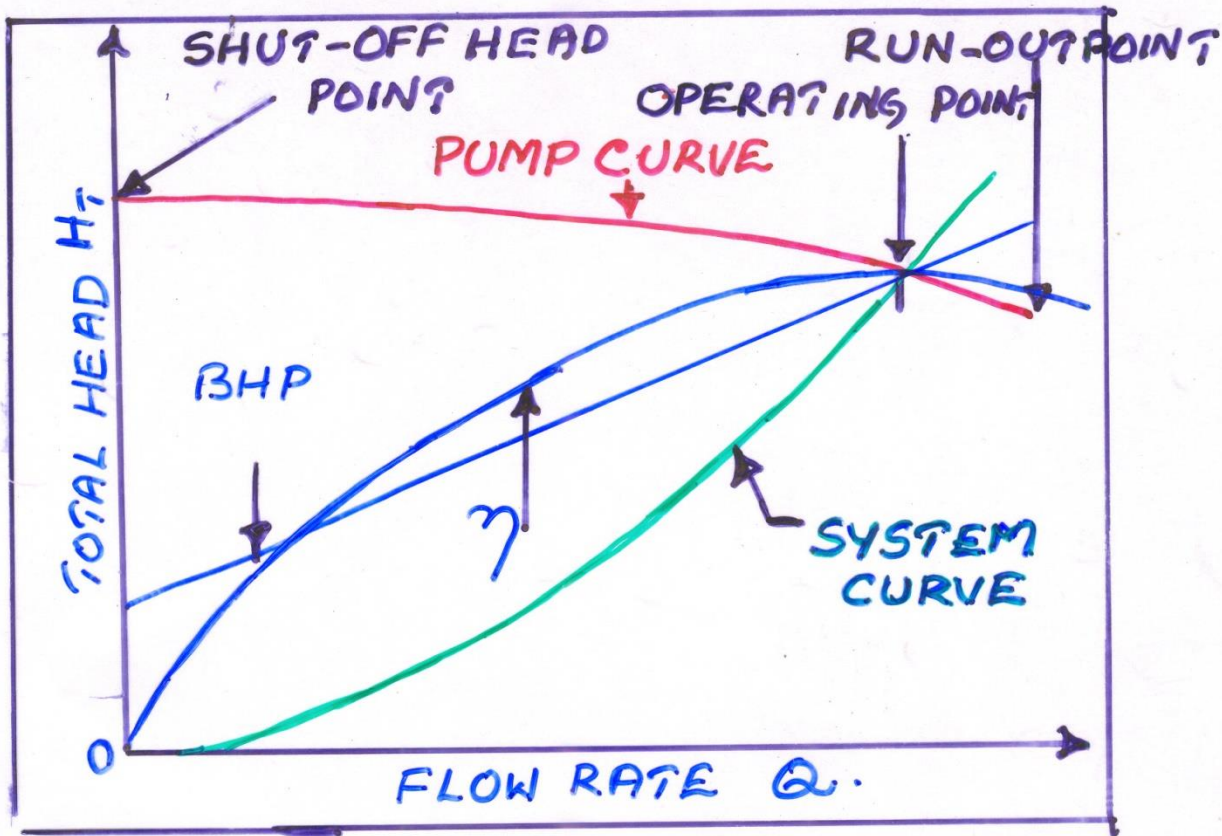 SHUT-OFF HEAD
POINT
RUN-OUTPOINT
OPERATING POINT
PUMP CURVE
TOTAL HEAD HT
BHP
η
SYSTEM
CURVE
0
FLOW RATE Q.